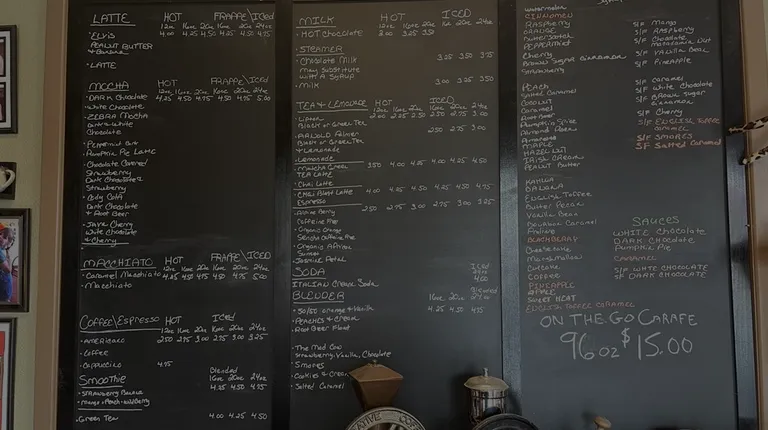 LATTE HOT FRAPPE\ICED
12oz 16oz 20oz 16oz 20oz 24oz
• ELVIS 4.00 4.25 4.50 4.25 4.50 4.75
PEANUT BUTTER
& Banana
• LATTE
MOCHA HOT FRAPPE\ICED
12oz 16oz 20oz 16oz 20oz 24oz
• DARK Chocolate 4.25 4.50 4.75 4.50 4.75 5.00
• White Chocolate
• ZEBRA MOCHA
DARK & White
Chocolate
• Peppermint Bark
• Pumpkin Pie Latte
• Chocolate Covered
Strawberry
Dark Chocolate &
Strawberry
Dark Chocolate
& Root Beer
• Java Cherry
White Chocolate
& Cherry
MACCHIATO HOT FRAPPE\ICED
12oz 16oz 20oz 16oz 20oz 24oz
• Caramel Macchiato
• Macchiato
COFFEE\ESPRESSO HOT Iced
12oz 16oz 20oz 16oz 20oz 24oz
• AMERICANO 2.50 2.75 3.00 2.75 3.00 3.25
• COFFEE
• CAPPUCCINO 4.75
Smoothie Blended
16oz 20oz 24oz
• STRAWBERRY BANANA 4.25 4.50 4.75
• Green Tea 4.00 4.25 4.50
MILK HOT ICED
12oz 16oz 20oz 16oz 20oz 24oz
• HOT Chocolate 3.00 3.25 3.50
STEAMER
• Chocolate Milk 3.25 3.50 3.75
may substitute
with A Syrup
• Milk 3.00 3.25 3.50
TEA & LEMONADE HOT ICED
12oz 16oz 20oz 16oz 20oz 24oz
Black or Green Tea
• ARNOLD Palmer 2.50 2.75 3.00
Black or Green Tea
& Lemonade
• Lemonade
• Matcha Green 3.50 4.00 4.25 4.00 4.25 4.50
TEA LATTE
• Chai Latte
Espresso
Caffeine Free
• Organic African
Sunset
SODA Iced
24oz
ITALIAN Cream Soda 4.00
BLENDER Blended
16oz 20oz 24oz
• 50/50 orange & Vanilla 4.25 4.50 4.75
• Peaches & Cream
• Root Beer Float
• The Mad Cow
Strawberry, Vanilla, Chocolate
• Smores
• Cookies & Cream
• Salted Caramel
watermelon
CINNAMON
RASPBERRY
ORANGE
Butterscotch
PEPPERMINT
Cherry
Brown Sugar Cinnamon
Strawberry
PEACH
Salted Caramel
Coconut
Caramel
Root Beer
Pumpkin Spice
Amaretto
MAPLE
HAZELNUT
IRISH CREAM
PEANUT Butter
KAHLUA
BANANA
ENGLISH TOFFEE
Butter Pecan
Vanilla Bean
Bourbon Caramel
Praline
BLACKBERRY
Cheesecake
Marshmallow
Cupcake
COFFEE
PINEAPPLE
APPLE
SWEET HEAT
ENGLISH TOFFEE CARAMEL
S/F Mango
S/F Raspberry
S/F Chocolate
macadamia nut
S/F Vanilla Bean
S/F Pineapple
S/F Caramel
S/F White Chocolate
S/F Brown Sugar
Cinnamon
S/F Cherry
S/F ENGLISH TOFFEE
CARAMEL
S/F SMORES
S/F Salted Caramel
SAUCES
WHITE CHOCOLATE
DARK CHOCOLATE
PUMPKIN PIE
CARAMEL
S/F WHITE CHOCOLATE
S/F DARK CHOCOLATE
ON THE GO CARAFE
96oz $15.00